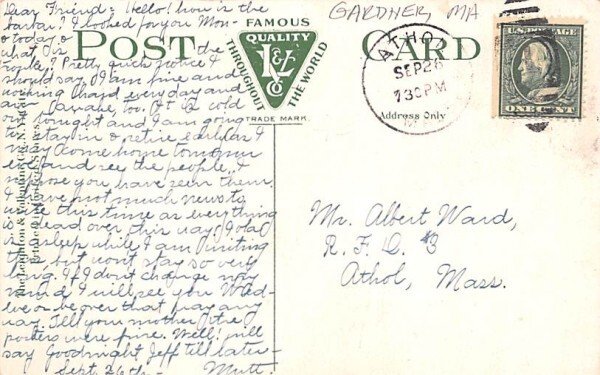 Dear Friend:- Hello! how is the
boy? I looked for you Mon-
today
what is the
Pretty quick notice I
should say. I am fine and
working hard every day and
too. It is cold
out tonight and I am going
to stay in & retire early. I
may come home tomorrow
eve and see the people. I
suppose you have seen them.
I have not much news to
write this time as everything
is dead over this way. Iola
is asleep while I am writing
this, but wont stay so very
long. If I don't change my
mind I will see you Wed-
eve or be over that way any
way. Tell your mother the
posters were fine. Well! will
say Goodnight Jeff till later-
Sept. 26th- Mutt.
The Leighton & Valentine Co., N.Y. City.
United States.
POST CARD
FAMOUS
QUALITY
THROUGHOUT THE WORLD
L&V
Co
TRADE MARK.
GARDNER, MA
ATHO
SEP 26
7 30 PM
Address Only
U.S. POSTAGE
ONE CENT
Mr. Albert Ward,
R. F. D. #3
Athol, Mass.